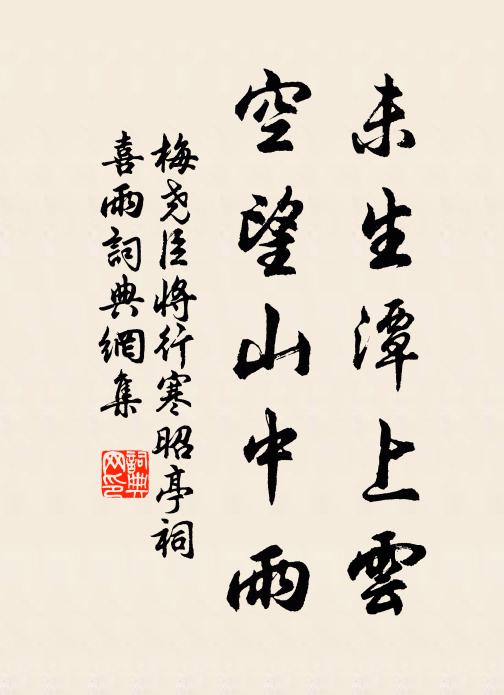 未生潭上雲
空望山中雨
梅堯臣將行寒昭亭祠
喜雨詞典網集
詞典網印